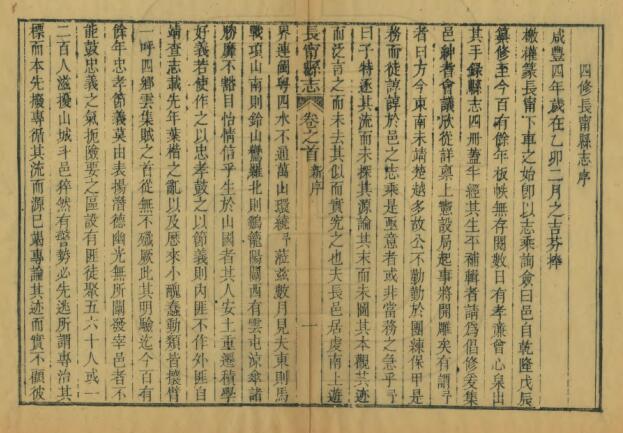 四修長甯縣志序
咸豐四年歲在乙卯二月之吉芬捧
檄權篆長甯下車之始卽以志乘詢僉曰邑自乾隆戊辰
纂修至今百有餘年板帙無存閱數日有孝廉曾心泉出
其手錄縣志四冊蓋半經其生平補輯者請爲倡修爰集
邑紳耆會議欣從詳稟上憲設局起事將開雕矣有謂予
者曰方今東南未靖楚越多故公不勤勤於團練保甲是
務而徒諄諄於邑之志乘是亟意者或非當務之急乎予
曰子特逐其流而未探其源論其末而未圖其本觀其迹
而泛言之而未去其似而實究之也夫長邑居虔南上游
長甯縣志
卷之首
新序
一
界連閩粵四水不通萬山環繞予蒞茲數月見夫東則馬
戰項山南則鈴山鸞羅北則鶴龍陽關西有雲屯涼傘諸
勝靡不豁目怡情信乎生於山國者其人安土重遷積學
好義若使作之以忠孝鼓之以節義則內匪不作外匪自
靖查志載先年葉楷之亂以及歷來小醜蠢動類皆攘臂
一呼四鄉雲集賊之首從無不殲厥此其明驗迄今百有
餘年忠孝節義莫由表揚潛德幽光無所闡發宰邑者不
能鼓忠義之氣扼險要之區設有匪徒聚五六十人或一
二百人滋擾山城斗邑猝然有警勢必先逃所謂專治其
標而本先撥專循其流而源已竭專論其迹而實不顧彼